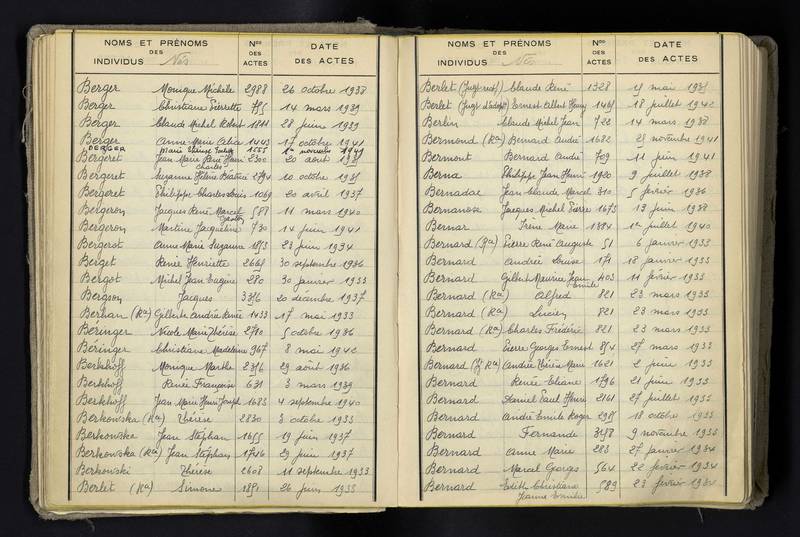 NOMS ET PRÉNOMS DES INDIVIDUS Nés
Nos DES ACTES
DATE DES ACTES
Berger Monique Michèle 2988 26 octobre 1938
Berger Christiane Pierrette 785 14 mars 1939
Berger Claude Michel Robert 28 juin 1939
Berger Anne Marie 1443 17 octobre 1941
BERGER Marie 1555 1er novembre 1941
Bergeret Jean Marie René Henri Charles 2300 20 août
Bergeret Suzanne Hélène 2794 10 octobre
Bergeret Philippe Charles Louis 1069 20 avril 1937
Bergeron Jacques René Marcel 588 11 mars 1940
Bergeron Martine Jacqueline 730 14 juin 1941
Bergerot Anne Marie Suzanne 23 juin 1934
Berget Renée Henriette 30 septembre 1936
Bergot Michel Jean Eugène 280 30 janvier 1933
Bergson Jacques 20 décembre 1937
Berhan (Ra) Gilberte Andrée Renée 1433 17 mai 1933
Béringer Nicole Marie Thérèse 5 octobre 1936
Béringer Christiane Madeleine 967 8 mai 1942
Berkhoff Monique Marthe 29 août 1936
Berkhoff Renée Françoise 631 3 mars 1939
Berkhoff Jean Marie Henri Joseph 1685 4 septembre 1940
Berkowska (Ra) Thérèse 2830 3 octobre 1933
Berkowska Jean Stephan 1655 19 juin 1937
Berkowska (Ra) Jean Stephan 1746 29 juin 1937
Berkowski Thérèse 2608 11 septembre 1933
Berlet (Ra) Simone 26 juin 1933
NOMS ET PRÉNOMS DES INDIVIDUS Nés
Nos DES ACTES
DATE DES ACTES
Berlet Claude René 1328 mai
Berlet Ernest Albert 18 juillet 1942
Berlin Claude Michel Jean 722 14 mars 1938
Bermond (Ra) Bernard André 1682 novembre 1941
Bermont Bernard André 709 11 juin 1941
Berna Philippe Jean Henri 1920 9 juillet 1938
Bernadac Jean Claude Marcel 310 5 février 1936
Jacques Michel Pierre 1673 13 juin 1938
Bernar Irène Marie 1884 1er juillet 1940
Bernard (Ra) Pierre René Auguste 51 6 janvier 1933
Bernard Andrée Louise 171 18 janvier 1933
Bernard Gilbert Maurice Jean Emile 403 11 février 1933
Bernard (Ra) Alfred 821 23 mars 1933
Bernard (Ra) Lucien 821 23 mars 1933
Bernard (Ra) Charles Frédéric 821 23 mars 1933
Bernard Pierre Georges Ernest 27 mars 1933
Bernard Andrée Thérèse Marie 1621 2 juin 1933
Bernard Renée Eliane 1796 21 juin 1933
Bernard Daniel Paul Henri 2161 27 juillet 1933
Bernard André Emile Roger 18 octobre 1933
Bernard Fernande 9 novembre 1933
Bernard Anne Marie 283 27 janvier 1934
Bernard Marcel Georges 564 22 février 1934
Bernard Edith Christiane Jeanne Emilie 589 23 février 1934